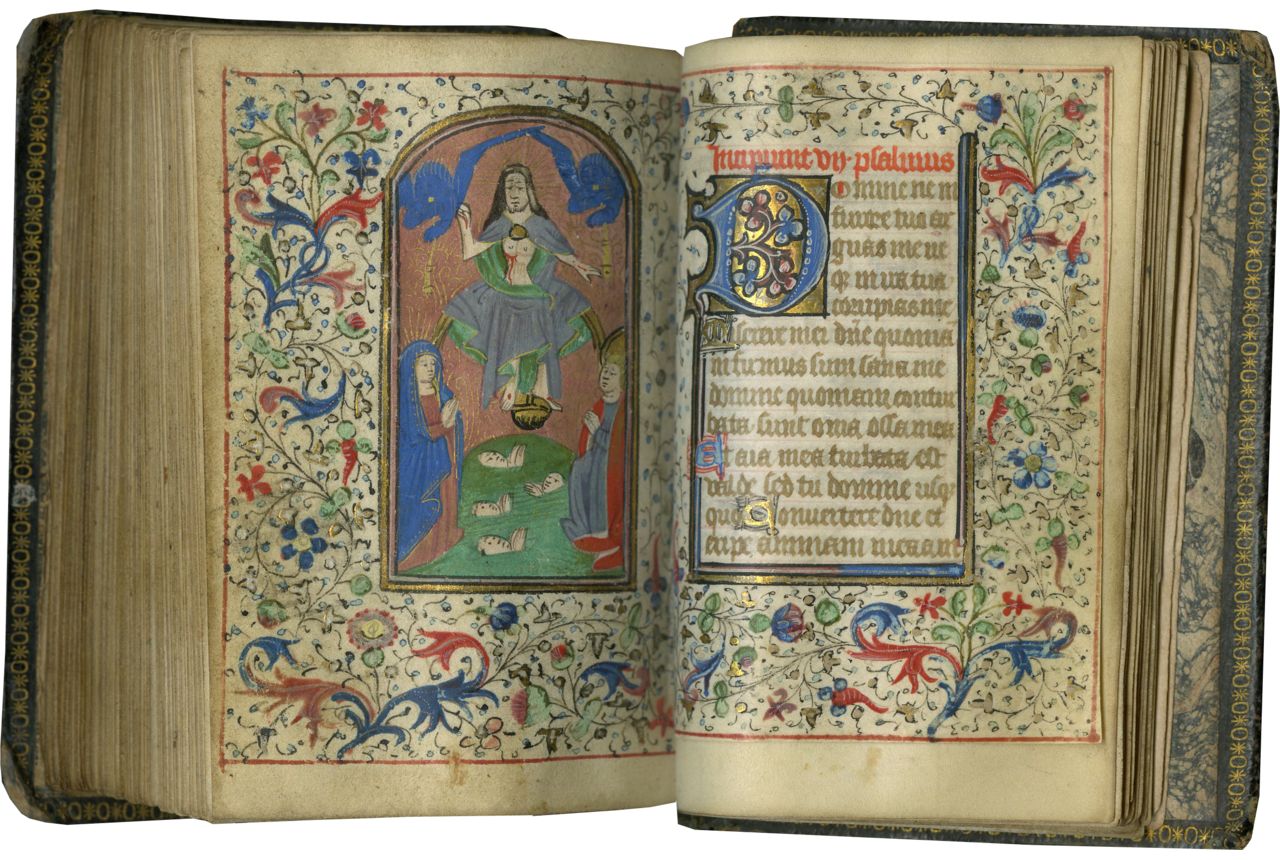 Incipiunt vij · psalmus
Domine ne in
furore tuo ar
guas me ne
qꝫ in ira tua
corripias me
Miserere mei dn̄e quoniā
infirmus sum sana me
domine quoniam contur
bata sunt oīa ossa mea
Et aīa mea turbata est
valde sed tu domine usq
quo Convertere dn̄e et
eripe animam meam